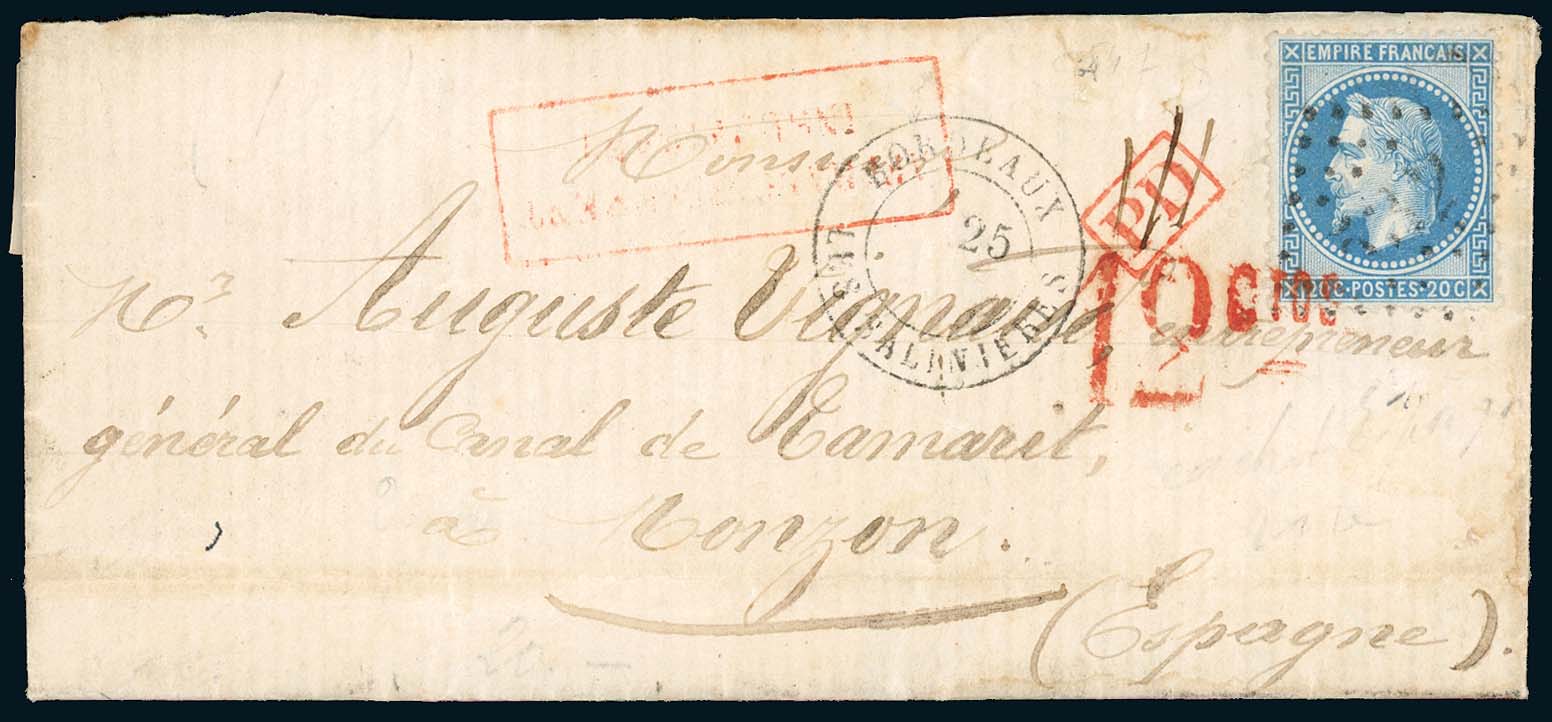 Monsieur
Mr. Auguste Vignard, entrepreneur
général du Canal de Tamarit,
à Monzon.
(Espagne).
BORDEAUX
25
SALINIERES
PD
12 CTOS
EMPIRE FRANCAIS
20C·POSTES·20C
20